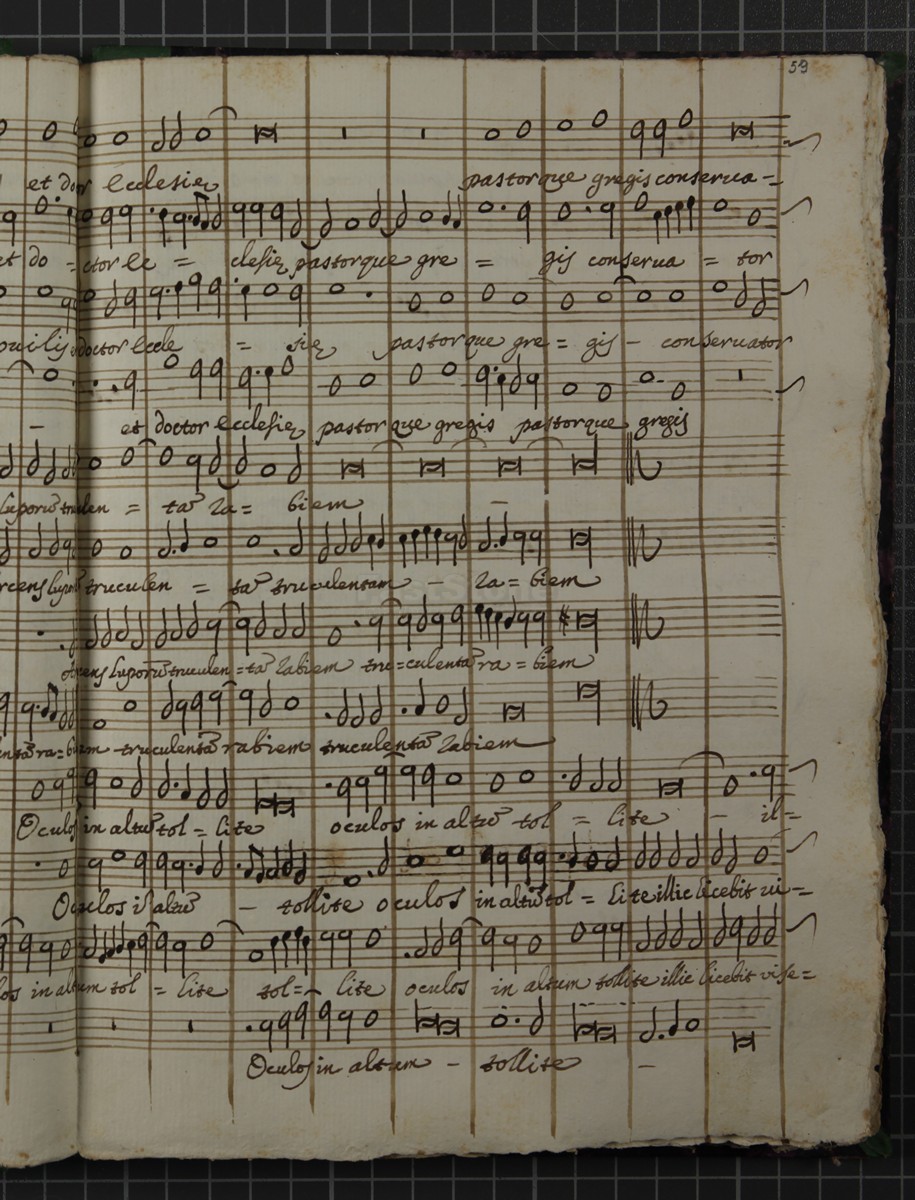 59
et doctor Ecclesię pastorque gregis conserua-
et do = ctor Ec = clesię pastorque gre = gis conserua = tor
doctor Eccle = się pastorque gre = gis - conseruator
- et doctor Ecclesię pastor que gregis pastorque gregis
Luporũ truculen = tã Ra = biem -
truculen = tã truculentam - Ra = biem
Luporũ truculen = tã Rabiem tru = culentã ra = biem
ra = biem - truculentã rabiem truculentã Rabiem
Oculos in altũ tol = lite oculos in altũ tol = lite - il =
Oculos ĩ altũ - tollite oculos in altũ tol = lite illic licebit vi =
in altum tol = lite tol = lite oculos in altum tollite illic licebit vise =
Oculos in altum - tollite -